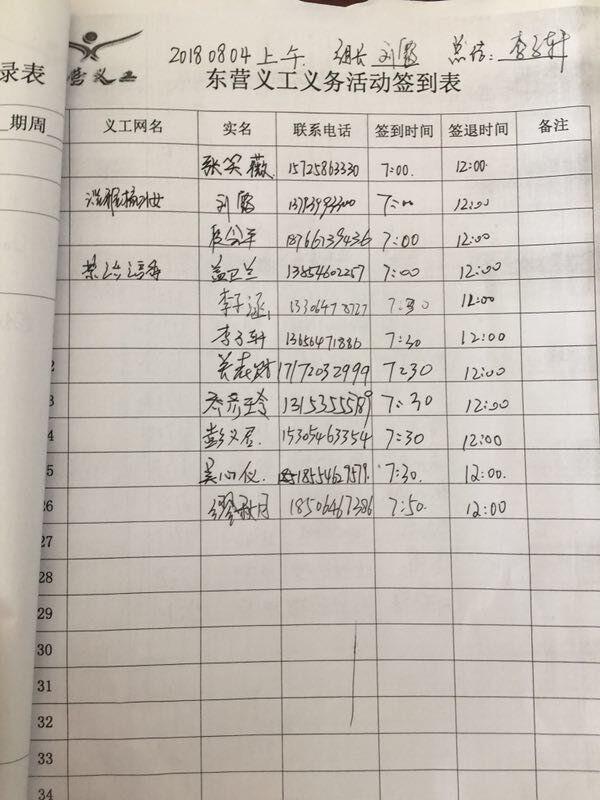 录表
期周
营义工
20180804上午. 组长 刘霞 总结: 李子轩
东营义工义务活动签到表
义工网名 实名 联系电话 签到时间 签退时间 备注
张笑薇 15725863330 7:00. 12:00
刘霞 7:00 12:00
18766739436 7:00 12:00
盖卫兰 13854602257 7:00 12:00
李子涵 13306478727 7:30 12:00
李子轩 13656471886 7:30 12:00
2 17172032999 7:30 12:00
3 13153555789 7:30 12:00
4 彭义居. 15305463354 7:30 12:00
5 吴心仪. 7:30. 12:00.
26 缪秋月 18506467386 7:50 12:00
27
28
29
30
31
32
33
34